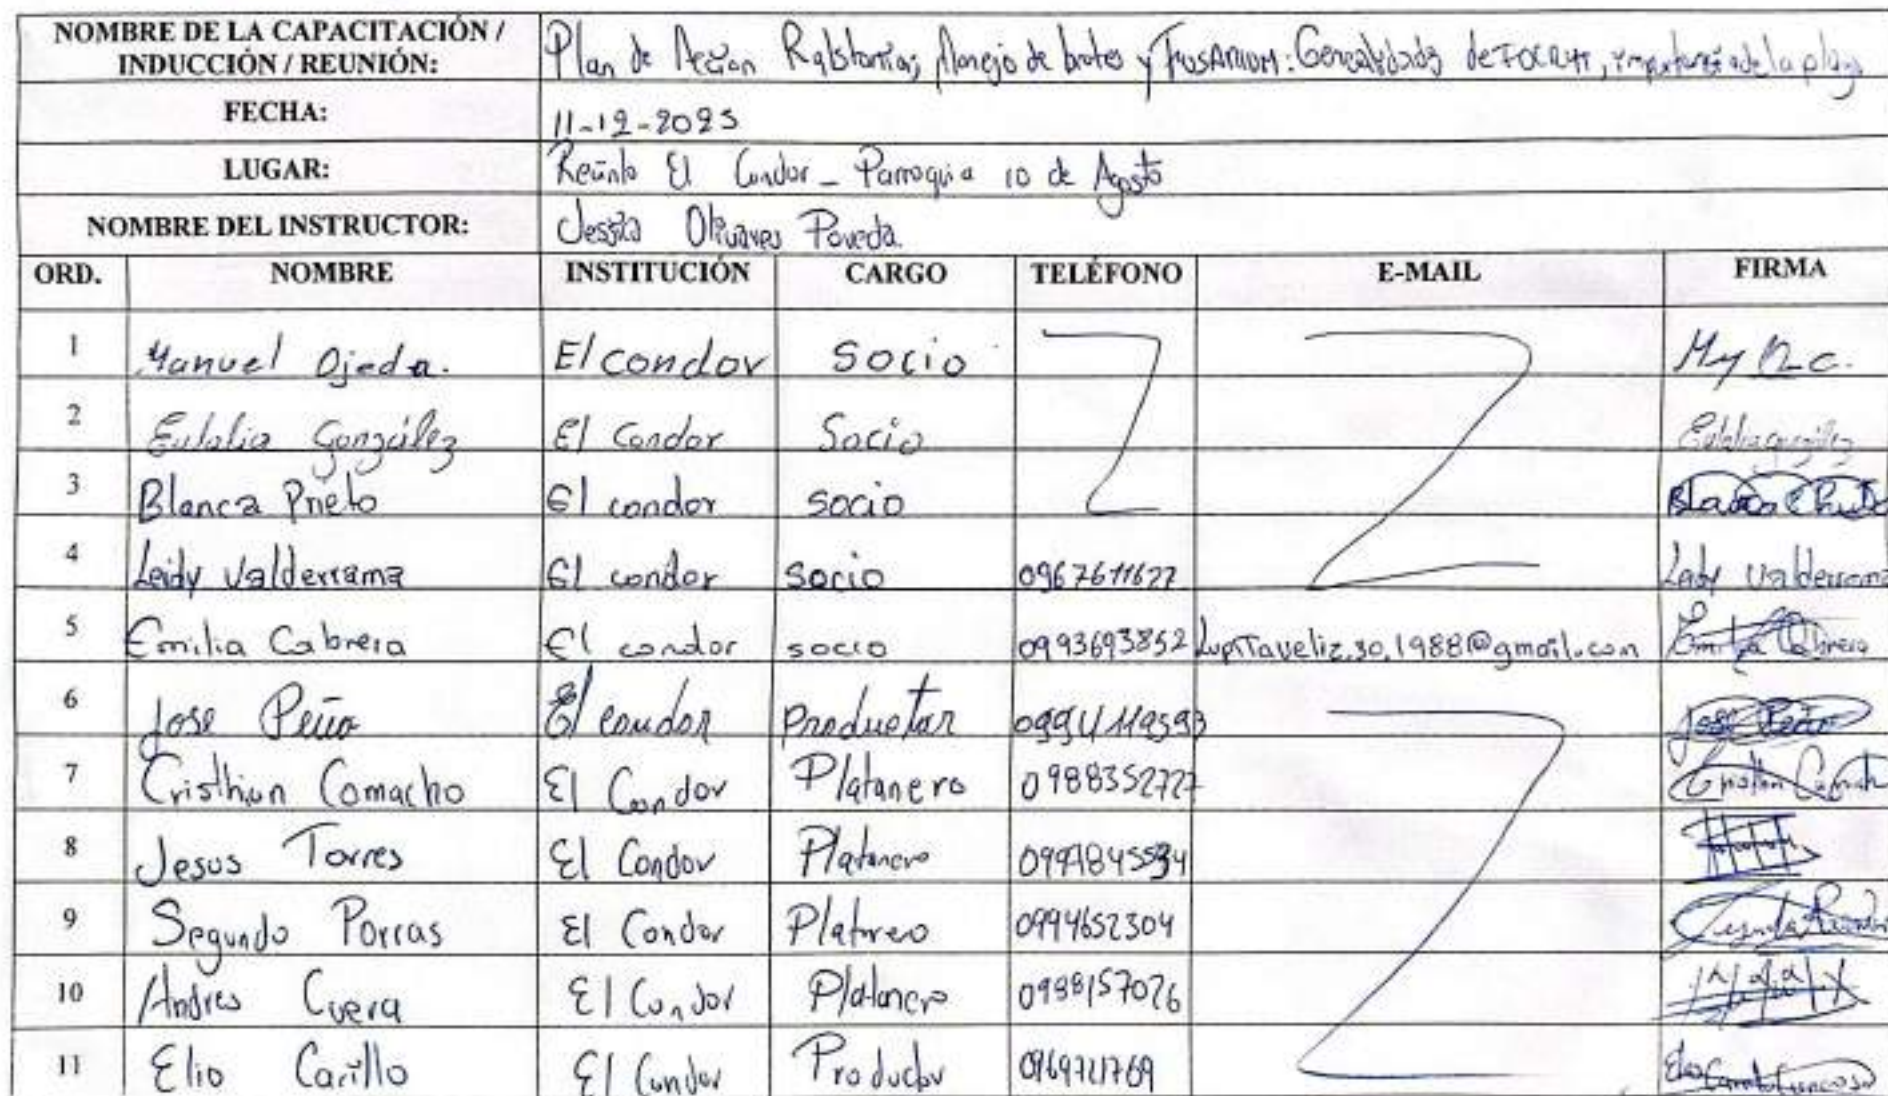 NOMBRE DE LA CAPACITACIÓN / INDUCCIÓN / REUNIÓN: Plan de Acción Ralstonia, Manejo de brotes y FUSARIUM: Generalidades de FOCR4T, importancia de la plaga
FECHA: 11-12-2023
LUGAR: Recinto El Condor - Parroquia 10 de Agosto
NOMBRE DEL INSTRUCTOR: Jessica Olivares Poveda
ORD. NOMBRE INSTITUCIÓN CARGO TELÉFONO E-MAIL FIRMA
1 Manuel Ojeda. El condor Socio
2 Eulalia González El Condor Socio Eulalia González
3 Blanca Prieto El condor socio Blanca Prieto
4 Leidy Valderrama El condor socio 0967611627 Leidy Valderrama
5 Emilia Cabrera El condor socio 0993693852 Lupitaveliz.30.1988@gmail.com Emilia Cabrera
6 Jose Peña El condor Productor 0994119593 Jose Peña
7 Cristhian Camacho El Condor Platanero 0988352727
8 Jesus Torres El Condor Platanero
9 Segundo Porras El Condor Platanero 0994652304
10 Andres Cuera El Condor Platanero 0988157026
11 Elio Carillo El Condor Productor